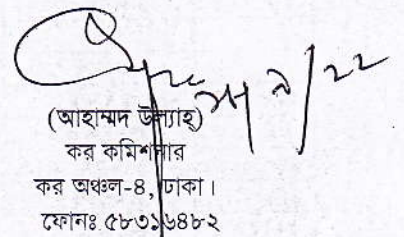 (আহাম্মদ উল্যাহ)
কর কমিশনার
কর অঞ্চল-৪, ঢাকা।
ফোনঃ ৫৮৩১৬৪৮২